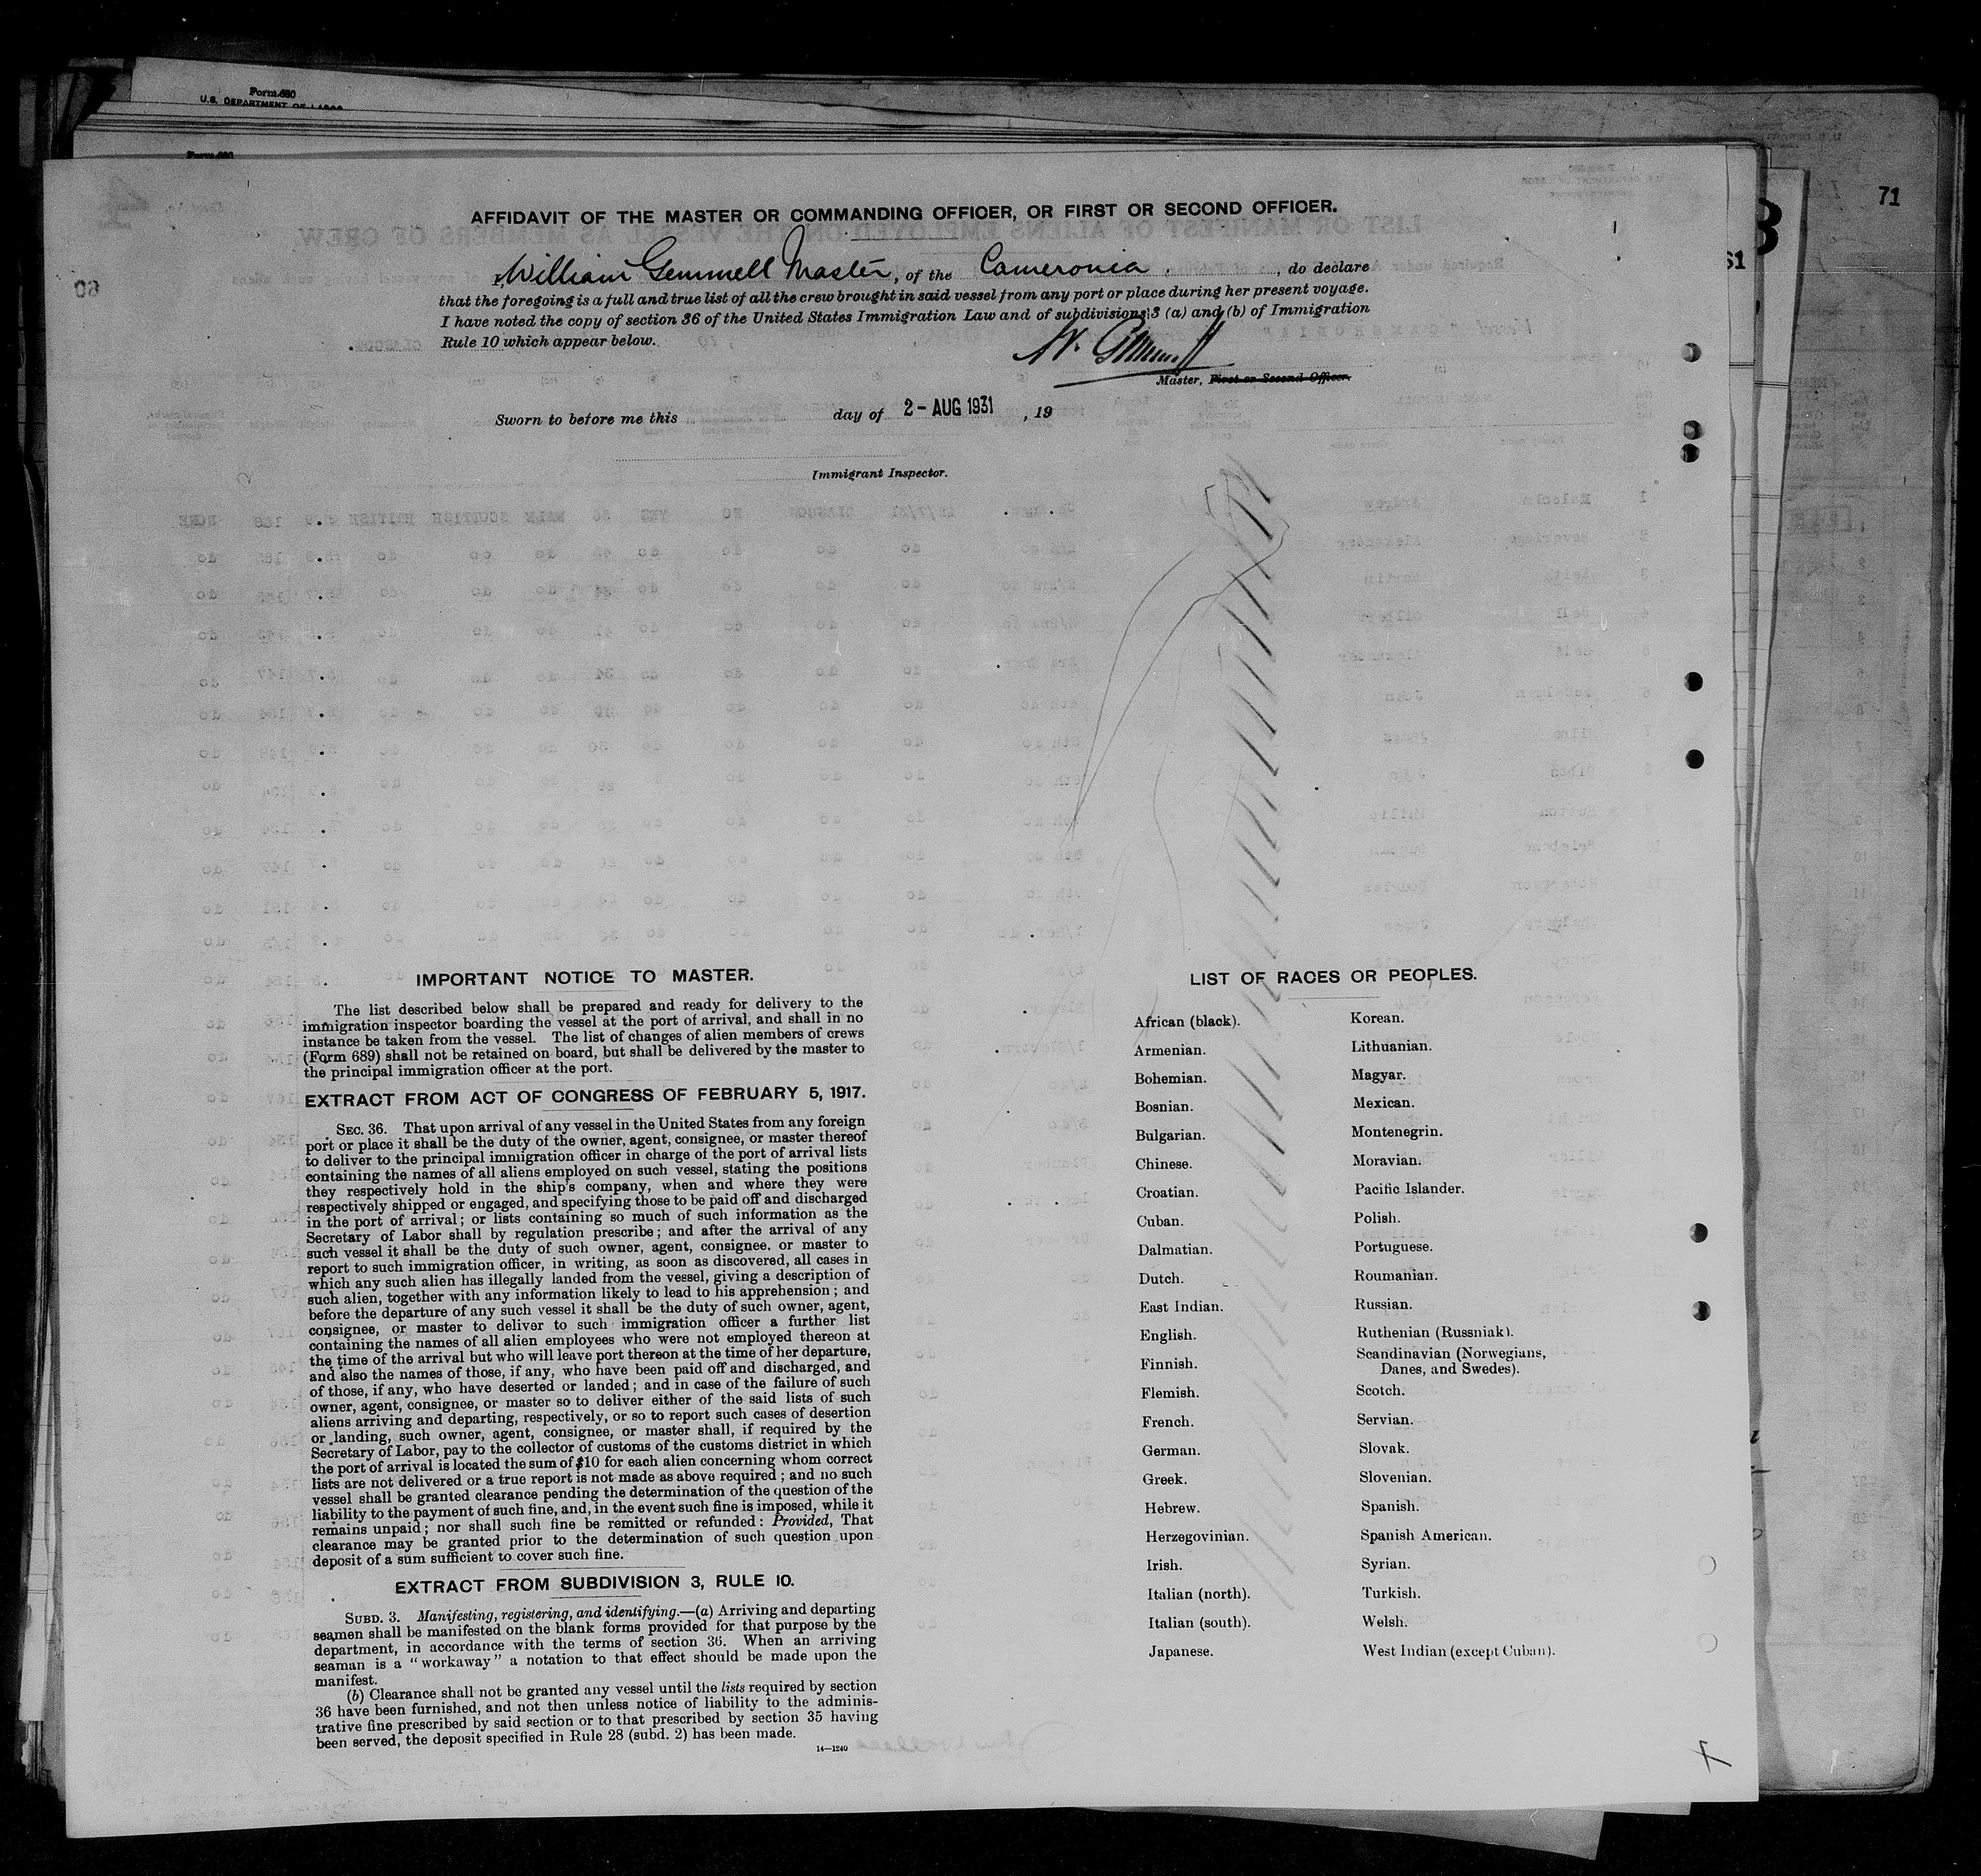 Form 680
U.S. DEPARTMENT OF LABOR
71
AFFIDAVIT OF THE MASTER OR COMMANDING OFFICER, OR FIRST OR SECOND OFFICER.
I, William Gemmell Master, of the Cameronia. , do declare
that the foregoing is a full and true list of all the crew brought in said vessel from any port or place during her present voyage.
I have noted the copy of section 36 of the United States Immigration Law and of subdivisions 3 (a) and (b) of Immigration
Rule 10 which appear below.
W. Gemmell
Master, First or Second Officer.
Sworn to before me this day of 2- AUG 1931 , 19
Immigrant Inspector.
IMPORTANT NOTICE TO MASTER.
The list described below shall be prepared and ready for delivery to the
immigration inspector boarding the vessel at the port of arrival, and shall in no
instance be taken from the vessel. The list of changes of alien members of crews
(Form 689) shall not be retained on board, but shall be delivered by the master to
the principal immigration officer at the port.
EXTRACT FROM ACT OF CONGRESS OF FEBRUARY 5, 1917.
SEC. 36. That upon arrival of any vessel in the United States from any foreign
port or place it shall be the duty of the owner, agent, consignee, or master thereof
to deliver to the principal immigration officer in charge of the port of arrival lists
containing the names of all aliens employed on such vessel, stating the positions
they respectively hold in the ship's company, when and where they were
respectively shipped or engaged, and specifying those to be paid off and discharged
in the port of arrival; or lists containing so much of such information as the
Secretary of Labor shall by regulation prescribe; and after the arrival of any
such vessel it shall be the duty of such owner, agent, consignee, or master to
report to such immigration officer, in writing, as soon as discovered, all cases in
which any such alien has illegally landed from the vessel, giving a description of
such alien, together with any information likely to lead to his apprehension; and
before the departure of any such vessel it shall be the duty of such owner, agent,
consignee, or master to deliver to such immigration officer a further list
containing the names of all alien employees who were not employed thereon at
the time of the arrival but who will leave port thereon at the time of her departure,
and also the names of those, if any, who have been paid off and discharged, and
of those, if any, who have deserted or landed; and in case of the failure of such
owner, agent, consignee, or master so to deliver either of the said lists of such
aliens arriving and departing, respectively, or so to report such cases of desertion
or landing, such owner, agent, consignee, or master shall, if required by the
Secretary of Labor, pay to the collector of customs of the customs district in which
the port of arrival is located the sum of $10 for each alien concerning whom correct
lists are not delivered or a true report is not made as above required; and no such
vessel shall be granted clearance pending the determination of the question of the
liability to the payment of such fine, and, in the event such fine is imposed, while it
remains unpaid; nor shall such fine be remitted or refunded: Provided, That
clearance may be granted prior to the determination of such question upon
deposit of a sum sufficient to cover such fine.
EXTRACT FROM SUBDIVISION 3, RULE 10.
SUBD. 3. Manifesting, registering, and identifying.—(a) Arriving and departing
seamen shall be manifested on the blank forms provided for that purpose by the
department, in accordance with the terms of section 36. When an arriving
seaman is a "workaway" a notation to that effect should be made upon the
manifest.
(b) Clearance shall not be granted any vessel until the lists required by section
36 have been furnished, and not then unless notice of liability to the adminis-
trative fine prescribed by said section or to that prescribed by section 35 having
been served, the deposit specified in Rule 28 (subd. 2) has been made.
14—1240
LIST OF RACES OR PEOPLES.
African (black).
Armenian.
Bohemian.
Bosnian.
Bulgarian.
Chinese.
Croatian.
Cuban.
Dalmatian.
Dutch.
East Indian.
English.
Finnish.
Flemish.
French.
German.
Greek.
Hebrew.
Herzegovinian.
Irish.
Italian (north).
Italian (south).
Japanese.
Korean.
Lithuanian.
Magyar.
Mexican.
Montenegrin.
Moravian.
Pacific Islander.
Polish.
Portuguese.
Roumanian.
Russian.
Ruthenian (Russniak).
Scandinavian (Norwegians,
Danes, and Swedes).
Scotch.
Servian.
Slovak.
Slovenian.
Spanish.
Spanish American.
Syrian.
Turkish.
Welsh.
West Indian (except Cuban).